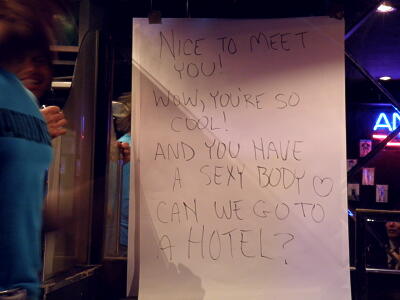 NICE TO MEET
YOU!
WOW, YOU'RE SO
COOL!
AND YOU HAVE
A SEXY BODY ♡
CAN WE GO TO
A HOTEL?